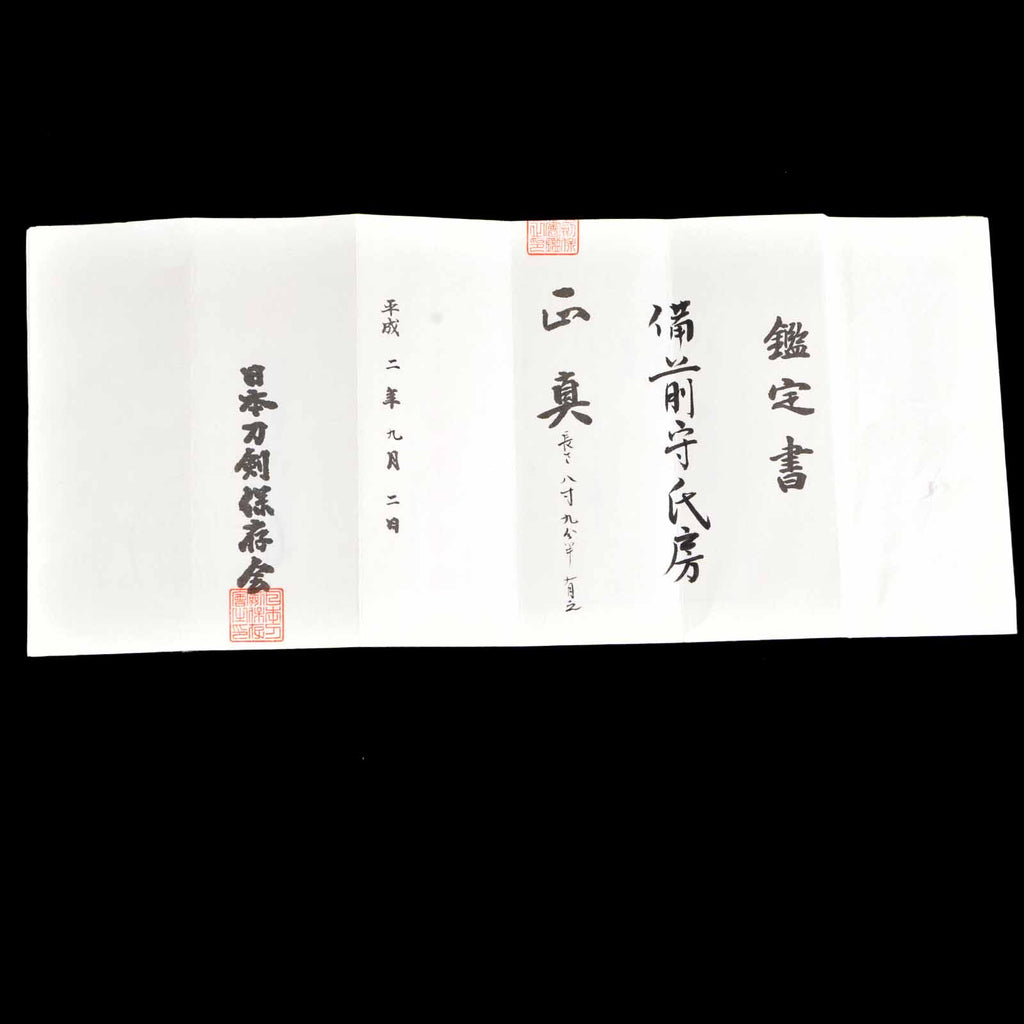 鑑定書
備前守氏房
正真
長さ八寸九分半有之
平成二年九月二日
日本刀剣保存会